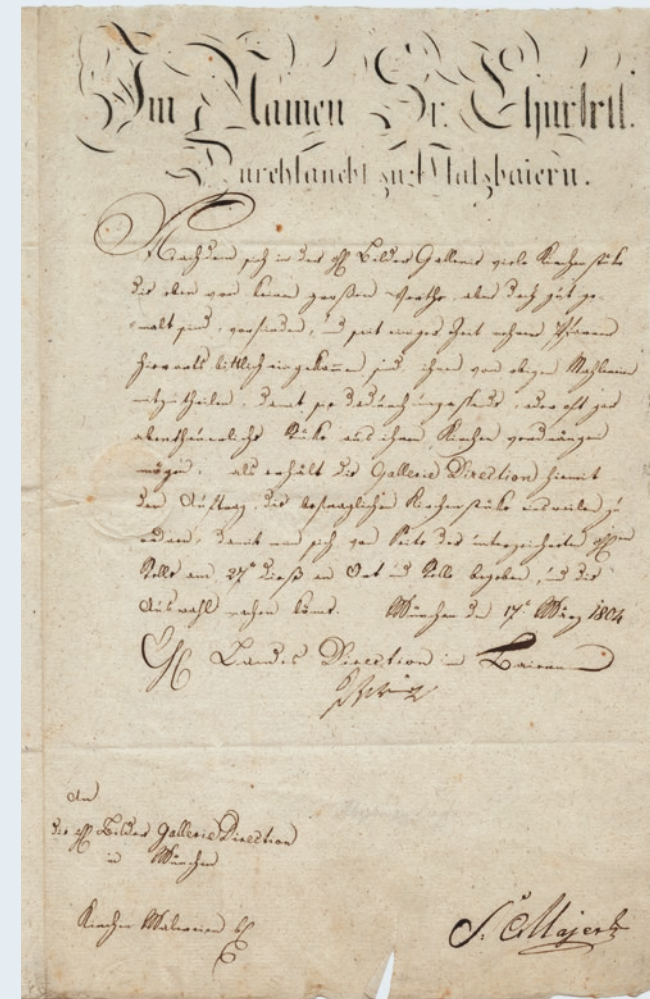 Im Namen Sr. Churfrtl.
Durchlaucht zu Pfalzbaiern.
Nachdem sich in der Bilder Gallerie viele Kirchenstüke
die eben von keinem großen Werthe, aber doch gut ge-
malt sind, vorfinden, und seit einiger Zeit mehrere Pfarreien
hierorts bittlich eingekommen sind, ihnen von obigen Mahlereien
mitzutheilen, damit sie dadurch unpassende, oder oft gar
abentheuerliche Stüke aus ihren Kirchen verdrängen
mögen, als erhält die Gallerie Direction hiemit
den Auftrag, die besagten Kirchenstüke einsweilen zu
ordnen, damit man sich von Seite der unterzeichneten
Stelle am 27t dieß an Ort und Stelle begeben, und die
Auswahl machen könne. München den 17t März 1804
Landes Direction in Baiern
An
die Bilder Gallerie Direction
in München
Kirchen Malereien